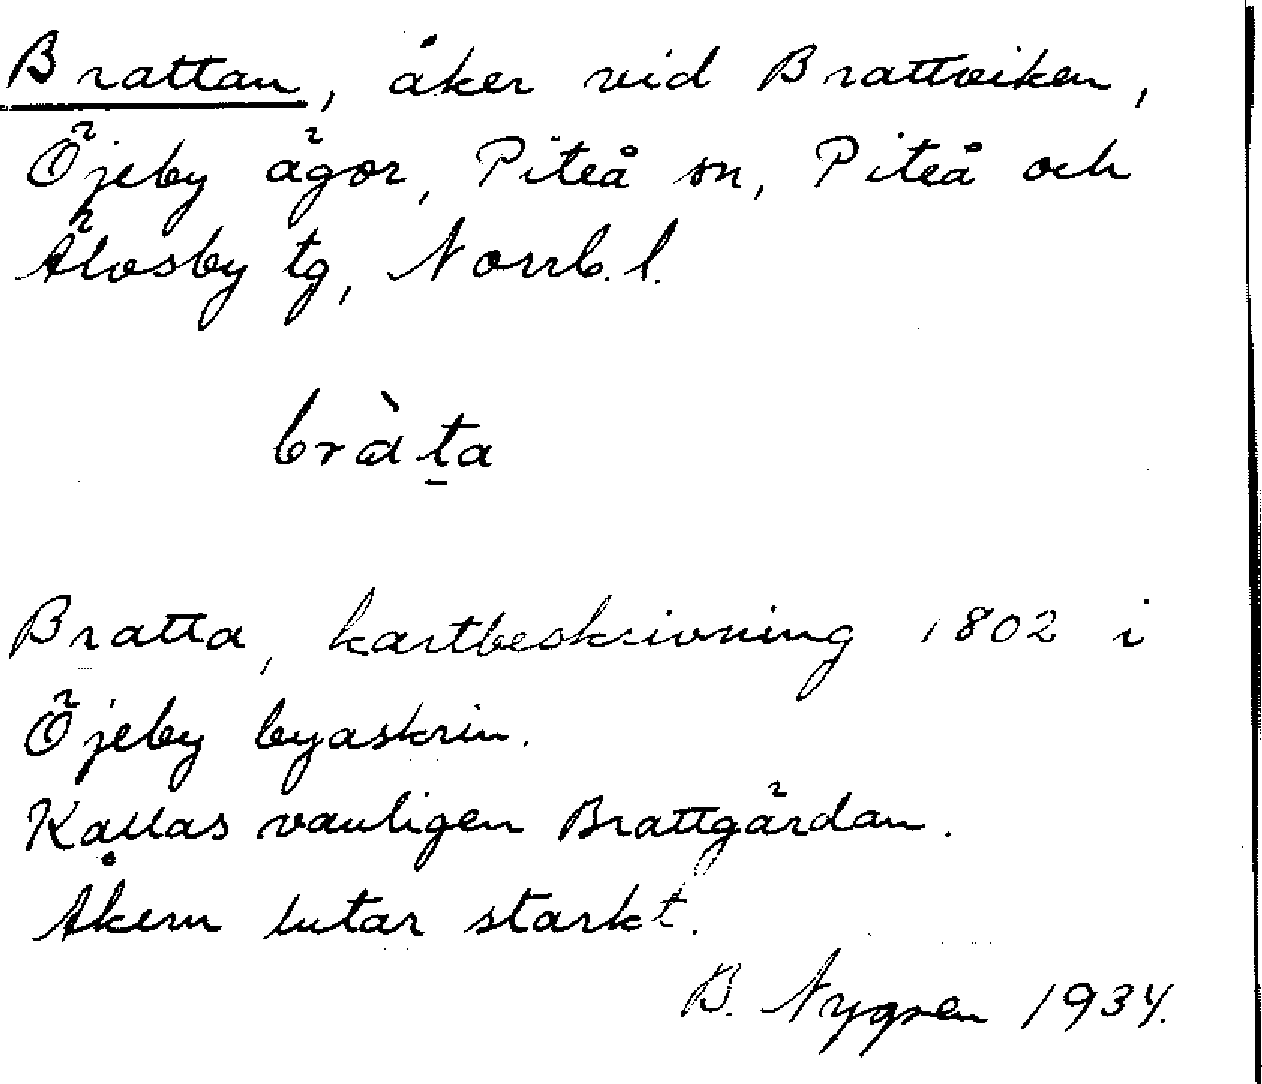 Brattan, åker vid Brattviken,
Öjeby ägor, Piteå sn, Piteå och
Älvsby tg, Norrb. l.
bràt̲a
Bratta, kartbeskrivning 1802 i
Öjeby byaskrin.
Kallas vanligen Brattgärdan.
Åkern lutar starkt.
B. Nygren 1934.